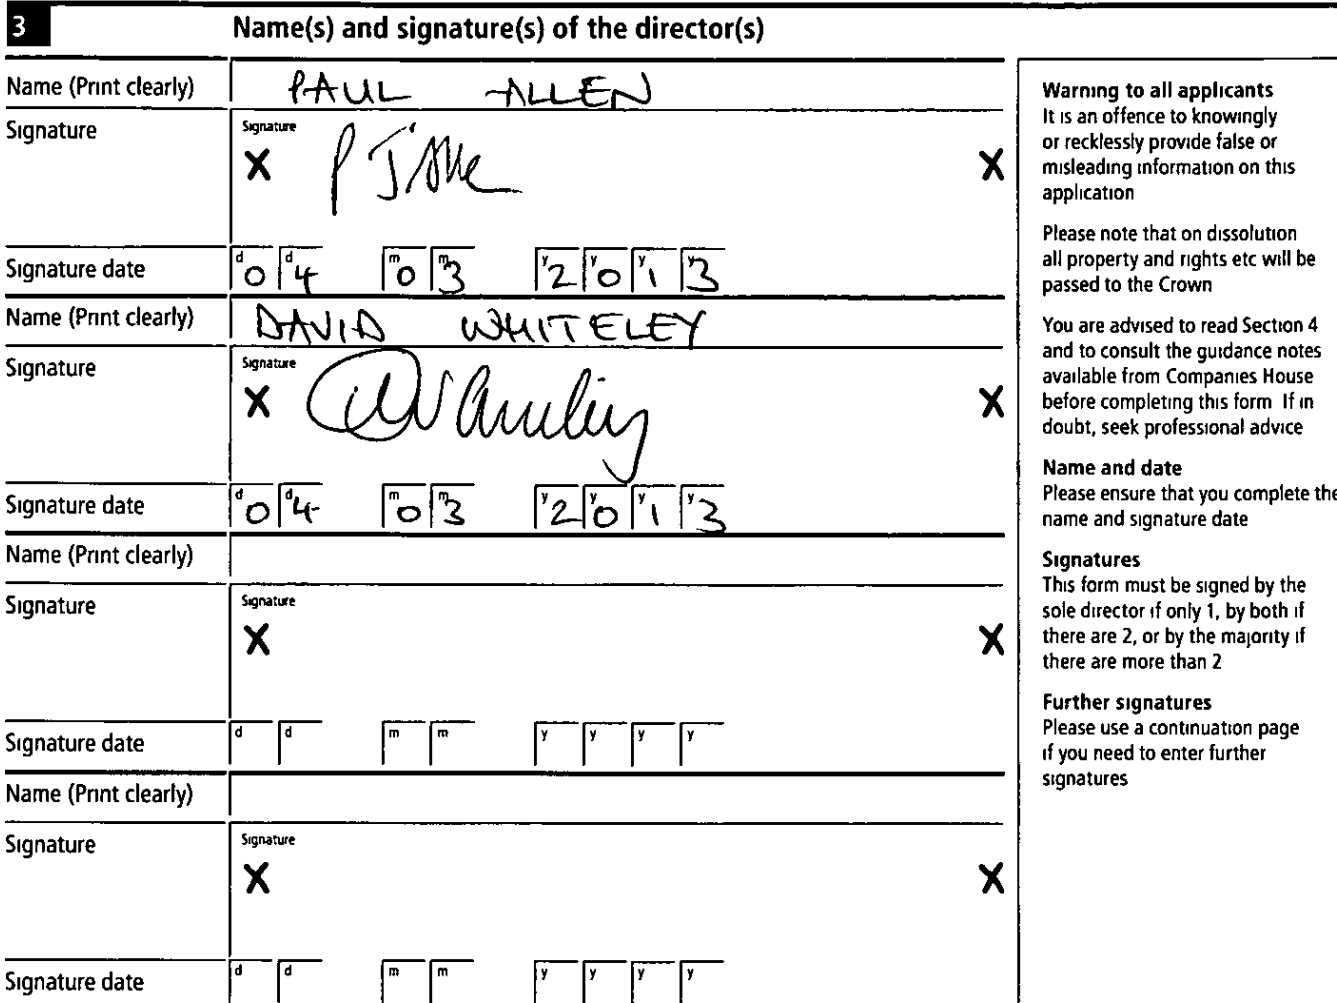 3 Name(s) and signature(s) of the director(s)
Name (Print clearly) PAUL ALLEN
Signature Signature
X P J X
Signature date d0 d4 m0 m3 y2 y0 y1 y3
Name (Print clearly) DAVID WHITELEY
Signature Signature
X X
Signature date d0 d4 m0 m3 y2 y0 y1 y3
Name (Print clearly)
Signature Signature
X X
Signature date d d m m y y y y
Name (Print clearly)
Signature Signature
X X
Signature date d d m m y y y y
Warning to all applicants
It is an offence to knowingly
or recklessly provide false or
misleading information on this
application
Please note that on dissolution
all property and rights etc will be
passed to the Crown
You are advised to read Section 4
and to consult the guidance notes
available from Companies House
before completing this form If in
doubt, seek professional advice
Name and date
Please ensure that you complete the
name and signature date
Signatures
This form must be signed by the
sole director if only 1, by both if
there are 2, or by the majority if
there are more than 2
Further signatures
Please use a continuation page
if you need to enter further
signatures